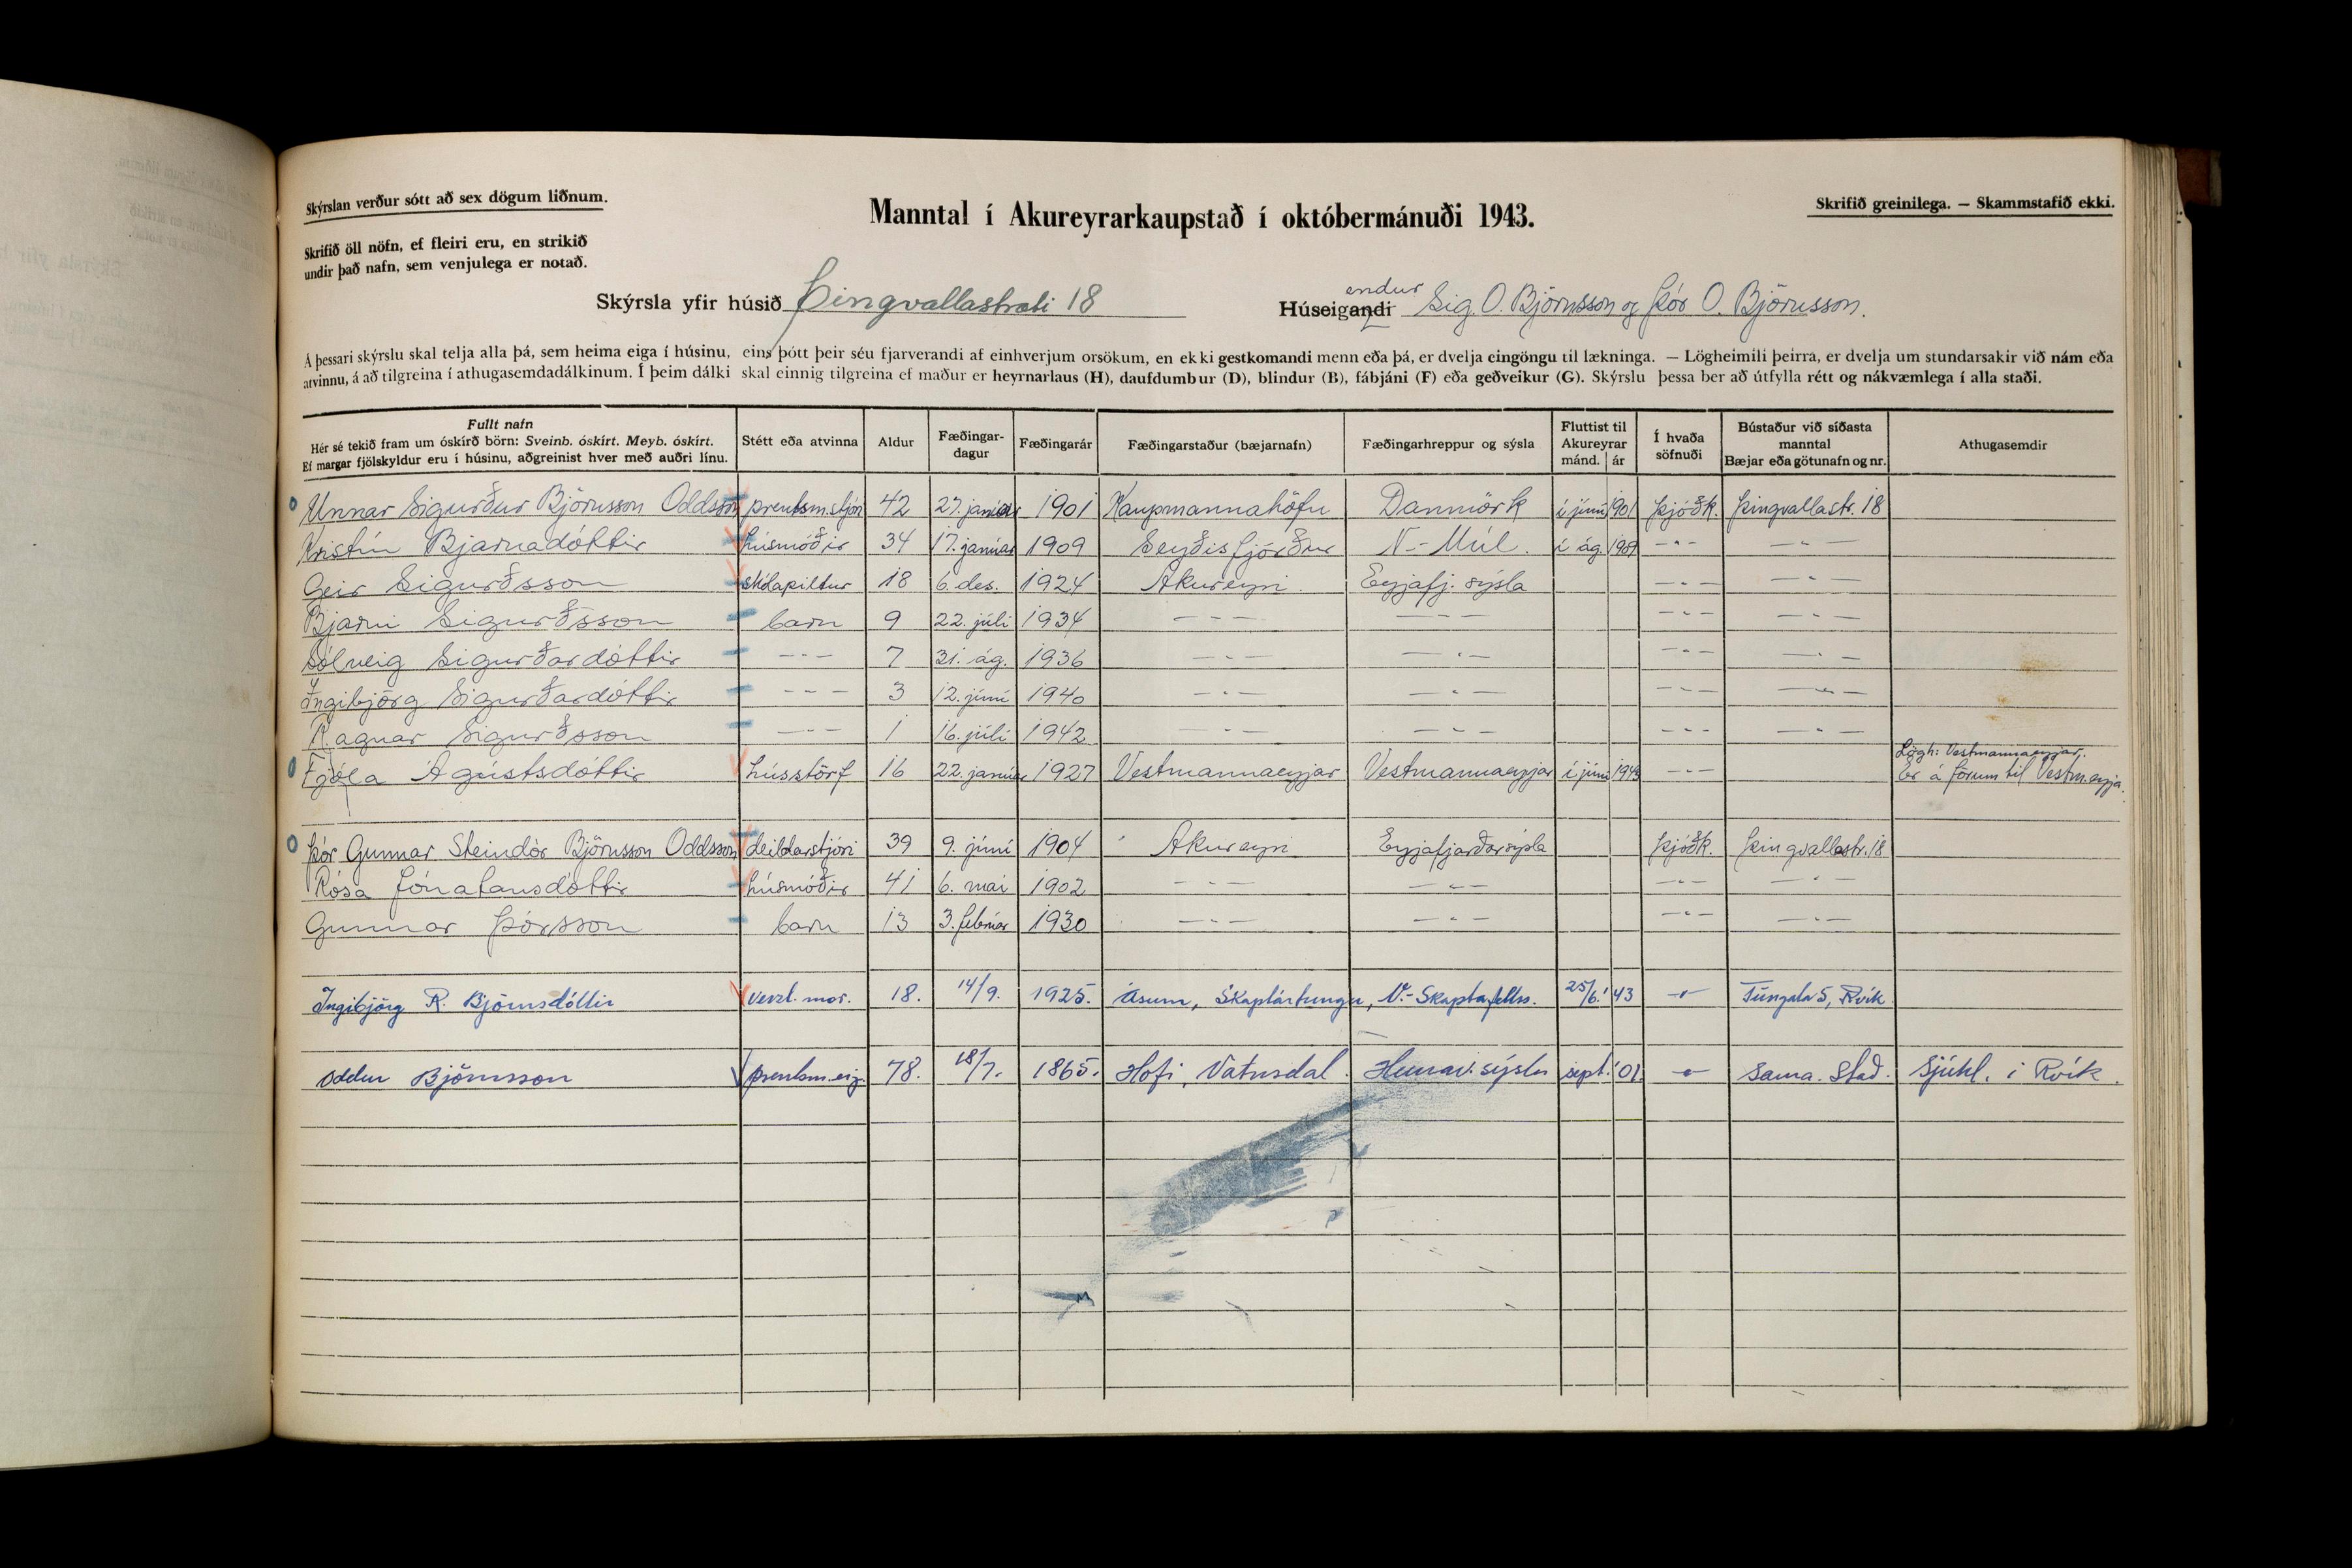 Skýrslan verður sótt að sex dögum liðnum.
Manntal í Akureyrarkaupstað í októbermánuði 1943.
Skrifið greinilega. — Skammstafið ekki.
Skrifið öll nöfn, ef fleiri eru, en strikið
undir það nafn, sem venjulega er notað.
Skýrsla yfir húsið Þingvallastræti 18
Húseigandi endur Sig. O. Björnsson og Þór O. Björnsson.
Á þessari skýrslu skal telja alla þá, sem heima eiga í húsinu, eins þótt þeir séu fjarverandi af einhverjum orsökum, en ekki gestkomandi menn eða þá, er dvelja eingöngu til lækninga. — Lögheimili þeirra, er dvelja um stundarsakir við nám eða
atvinnu, á að tilgreina í athugasemdadálkinum. Í þeim dálki skal einnig tilgreina ef maður er heyrnarlaus (H), daufdumbur (D), blindur (B), fábjáni (F) eða geðveikur (G). Skýrslu þessa ber að útfylla rétt og nákvæmlega í alla staði.
Fullt nafn
Hér sé tekið fram um óskírð börn: Sveinb. óskírt. Meyb. óskírt.
Ef margar fjölskyldur eru í húsinu, aðgreinist hver með auðri línu.
Stétt eða atvinna
Aldur
Fæðingar-
dagur
Fæðingarár
Fæðingarstaður (bæjarnafn)
Fæðingarhreppur og sýsla
Fluttist til
Akureyrar
mánd. ár
Í hvaða
söfnuði
Bústaður við síðasta
manntal
Bæjar eða götunafn og nr.
Athugasemdir
Unnar Sigurður Björnsson Oddsson prentsm.stjóri 42 27. janúar 1901 Kaupmannahöfn Danmörk í júní 1901 Þjóðk. Þingvallastr. 18
Kristín Bjarnadóttir húsmóðir 34 17. janúar 1909 Seyðisfjörður N.-Múl. í ág. 1909 -"- -"-
Geir Sigurðsson skólapiltur 18 6. des. 1924 Akureyri. Eyjafj. sýsla -"- -"-
Bjarni Sigurðsson barn 9 22. júlí 1934 -"- -"- -"- -"-
Sólveig Sigurðardóttir -"- 7 31. ág. 1936 -"- -"- -"- -"-
Ingibjörg Sigurðardóttir -"- 3 12. júní 1940 -"- -"- -"- -"-
Ragnar Sigurðsson -"- 1 16. júlí 1942 -"- -"- -"- -"-
Fjóla Ágústsdóttir hússtörf 16 22. janúar 1927 Vestmannaeyjar Vestmannaeyjar í júní 1943 -"- Lögh: Vestmannaeyjar.
Er á förum til Vestm.eyja.
Þór Gunnar Steindór Björnsson Oddsson deildarstjóri 39 9. júní 1904 Akureyri Eyjafjarðarsýsla Þjóðk. Þingvallastr. 18
Rósa Jónatansdóttir húsmóðir 41 6. maí 1902 -"- -"- -"- -"-
Gunnar Þórsson barn 13 3. febrúar 1930 -"- -"- -"- -"-
Ingibjörg R. Björnsdóttir verzl. mær. 18. 14/9. 1925. Ásum, Skaptártungu, V.-Skaptafellss. 25/6.' 43 -"- Túngata 5, Rvík.
Oddur Björnsson prentsm.eig. 78. 18/7. 1865. Hofi, Vatnsdal. Húnav.sýslu sept. '01. -"- Sama. Stað. Sjúkl. í Rvík.